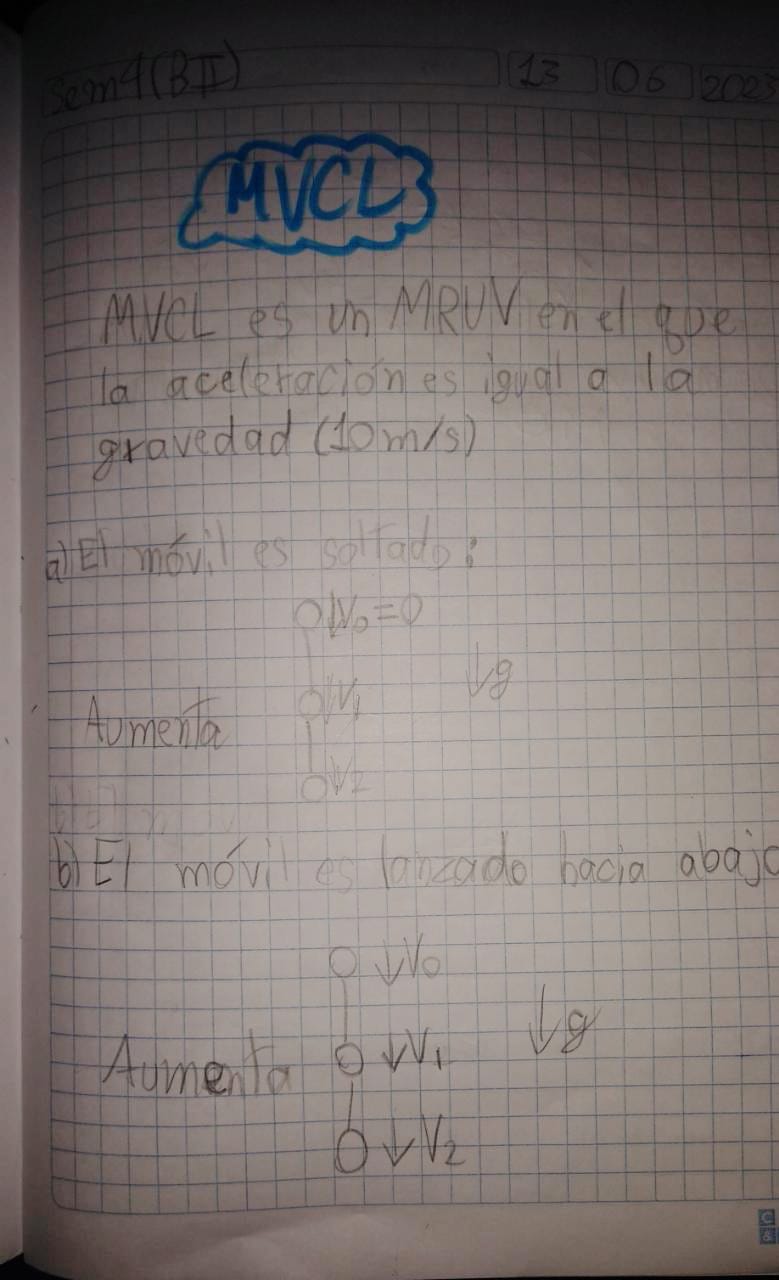 Sem4(BII) 13 06 2023
MVCL
MVCL es un MRUV en el que
la aceleración es igual a la
gravedad (10m/s)
a) El móvil es soltado:
↓V₀=0
↓g
Aumenta ↓V₁
↓V₂
b) El móvil es lanzado hacia abajo
↓V₀
↓g
Aumenta ↓V₁
↓V₂